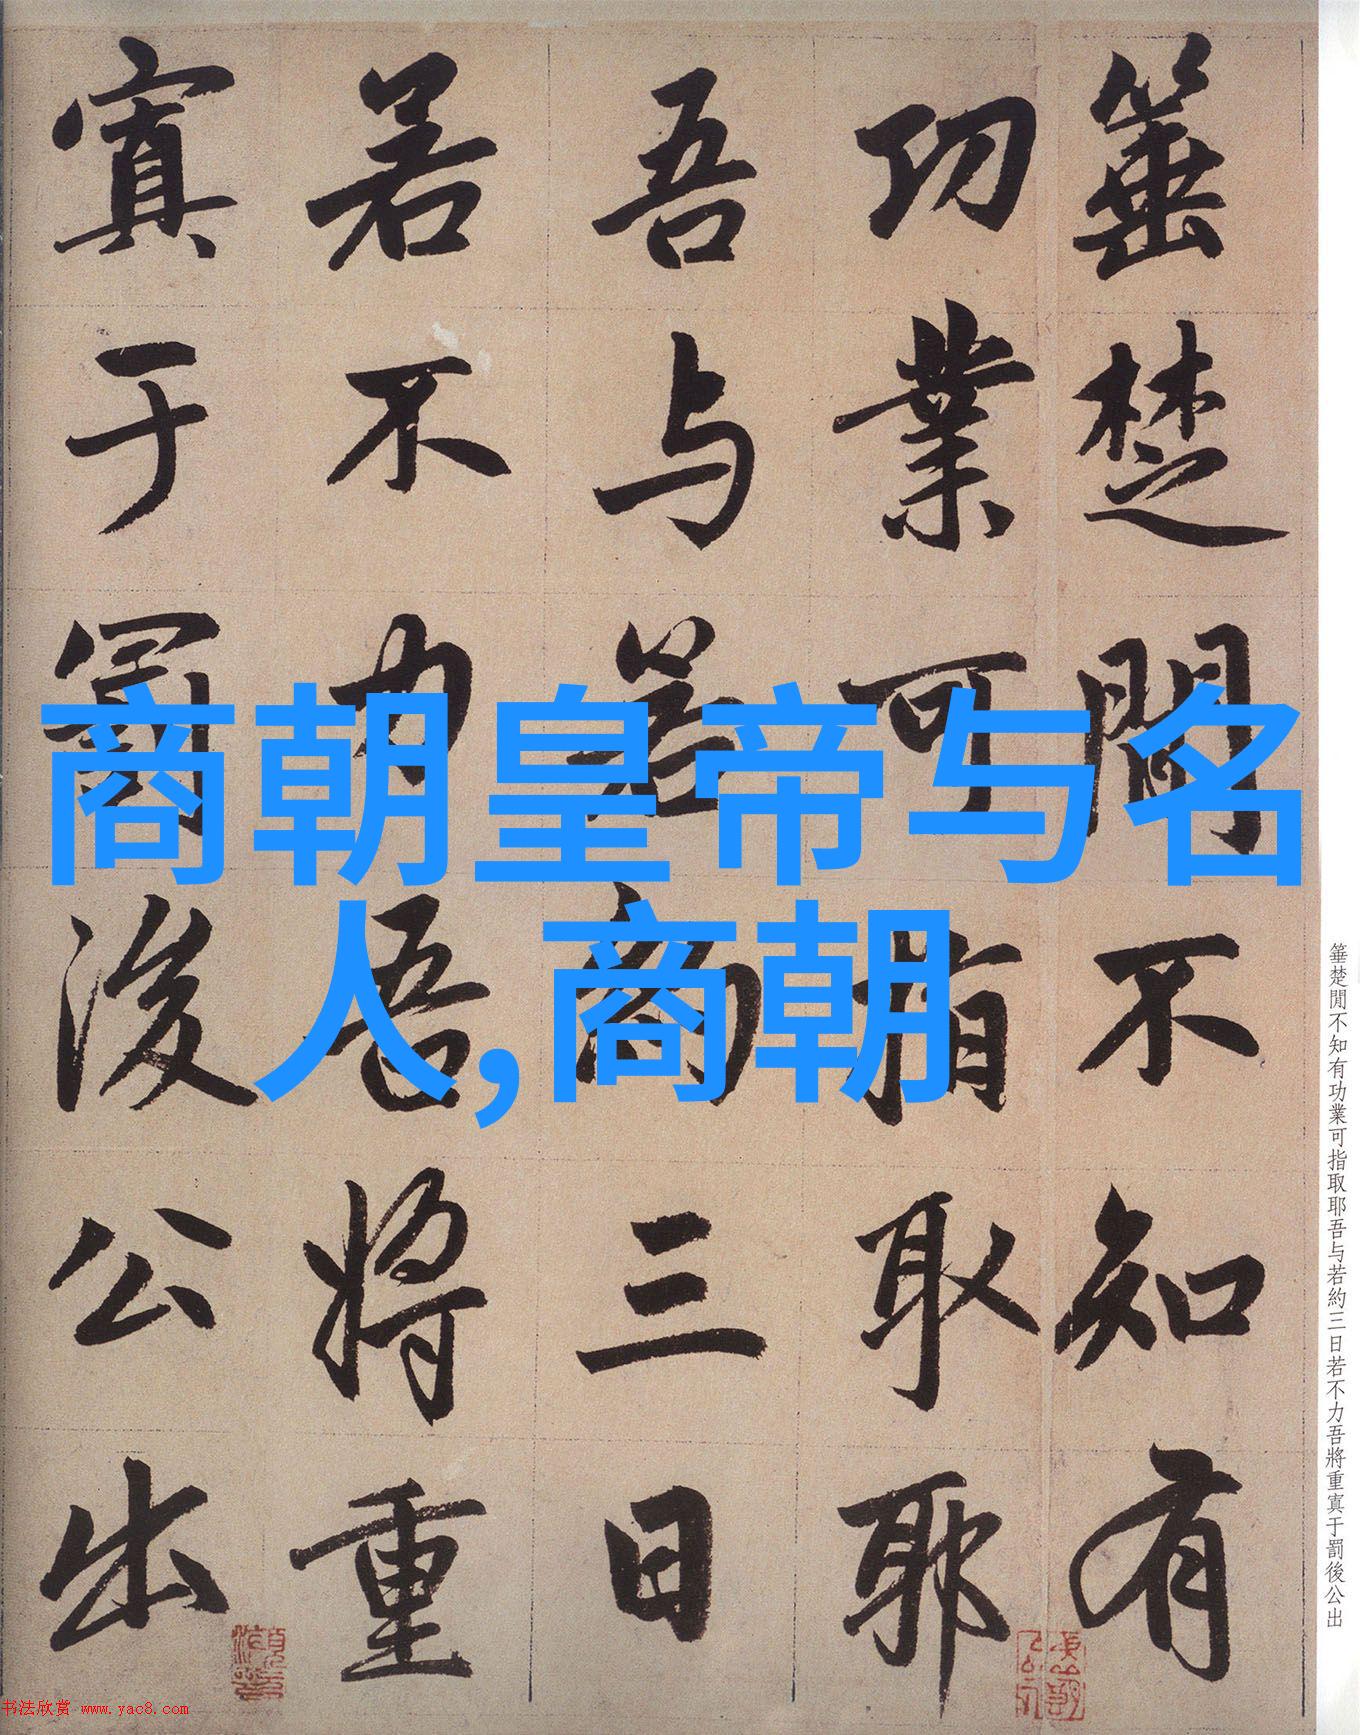 商朝皇帝与名
人,商朝
箠楚間不知有
功業可指取耶
吾与若約三日
若不力吾將重
寘于罰後公出
箠楚閒不知有功業可指取耶吾与若約三日若不力吾將重寘于罰後公出
书法欣赏 www.yac8.com